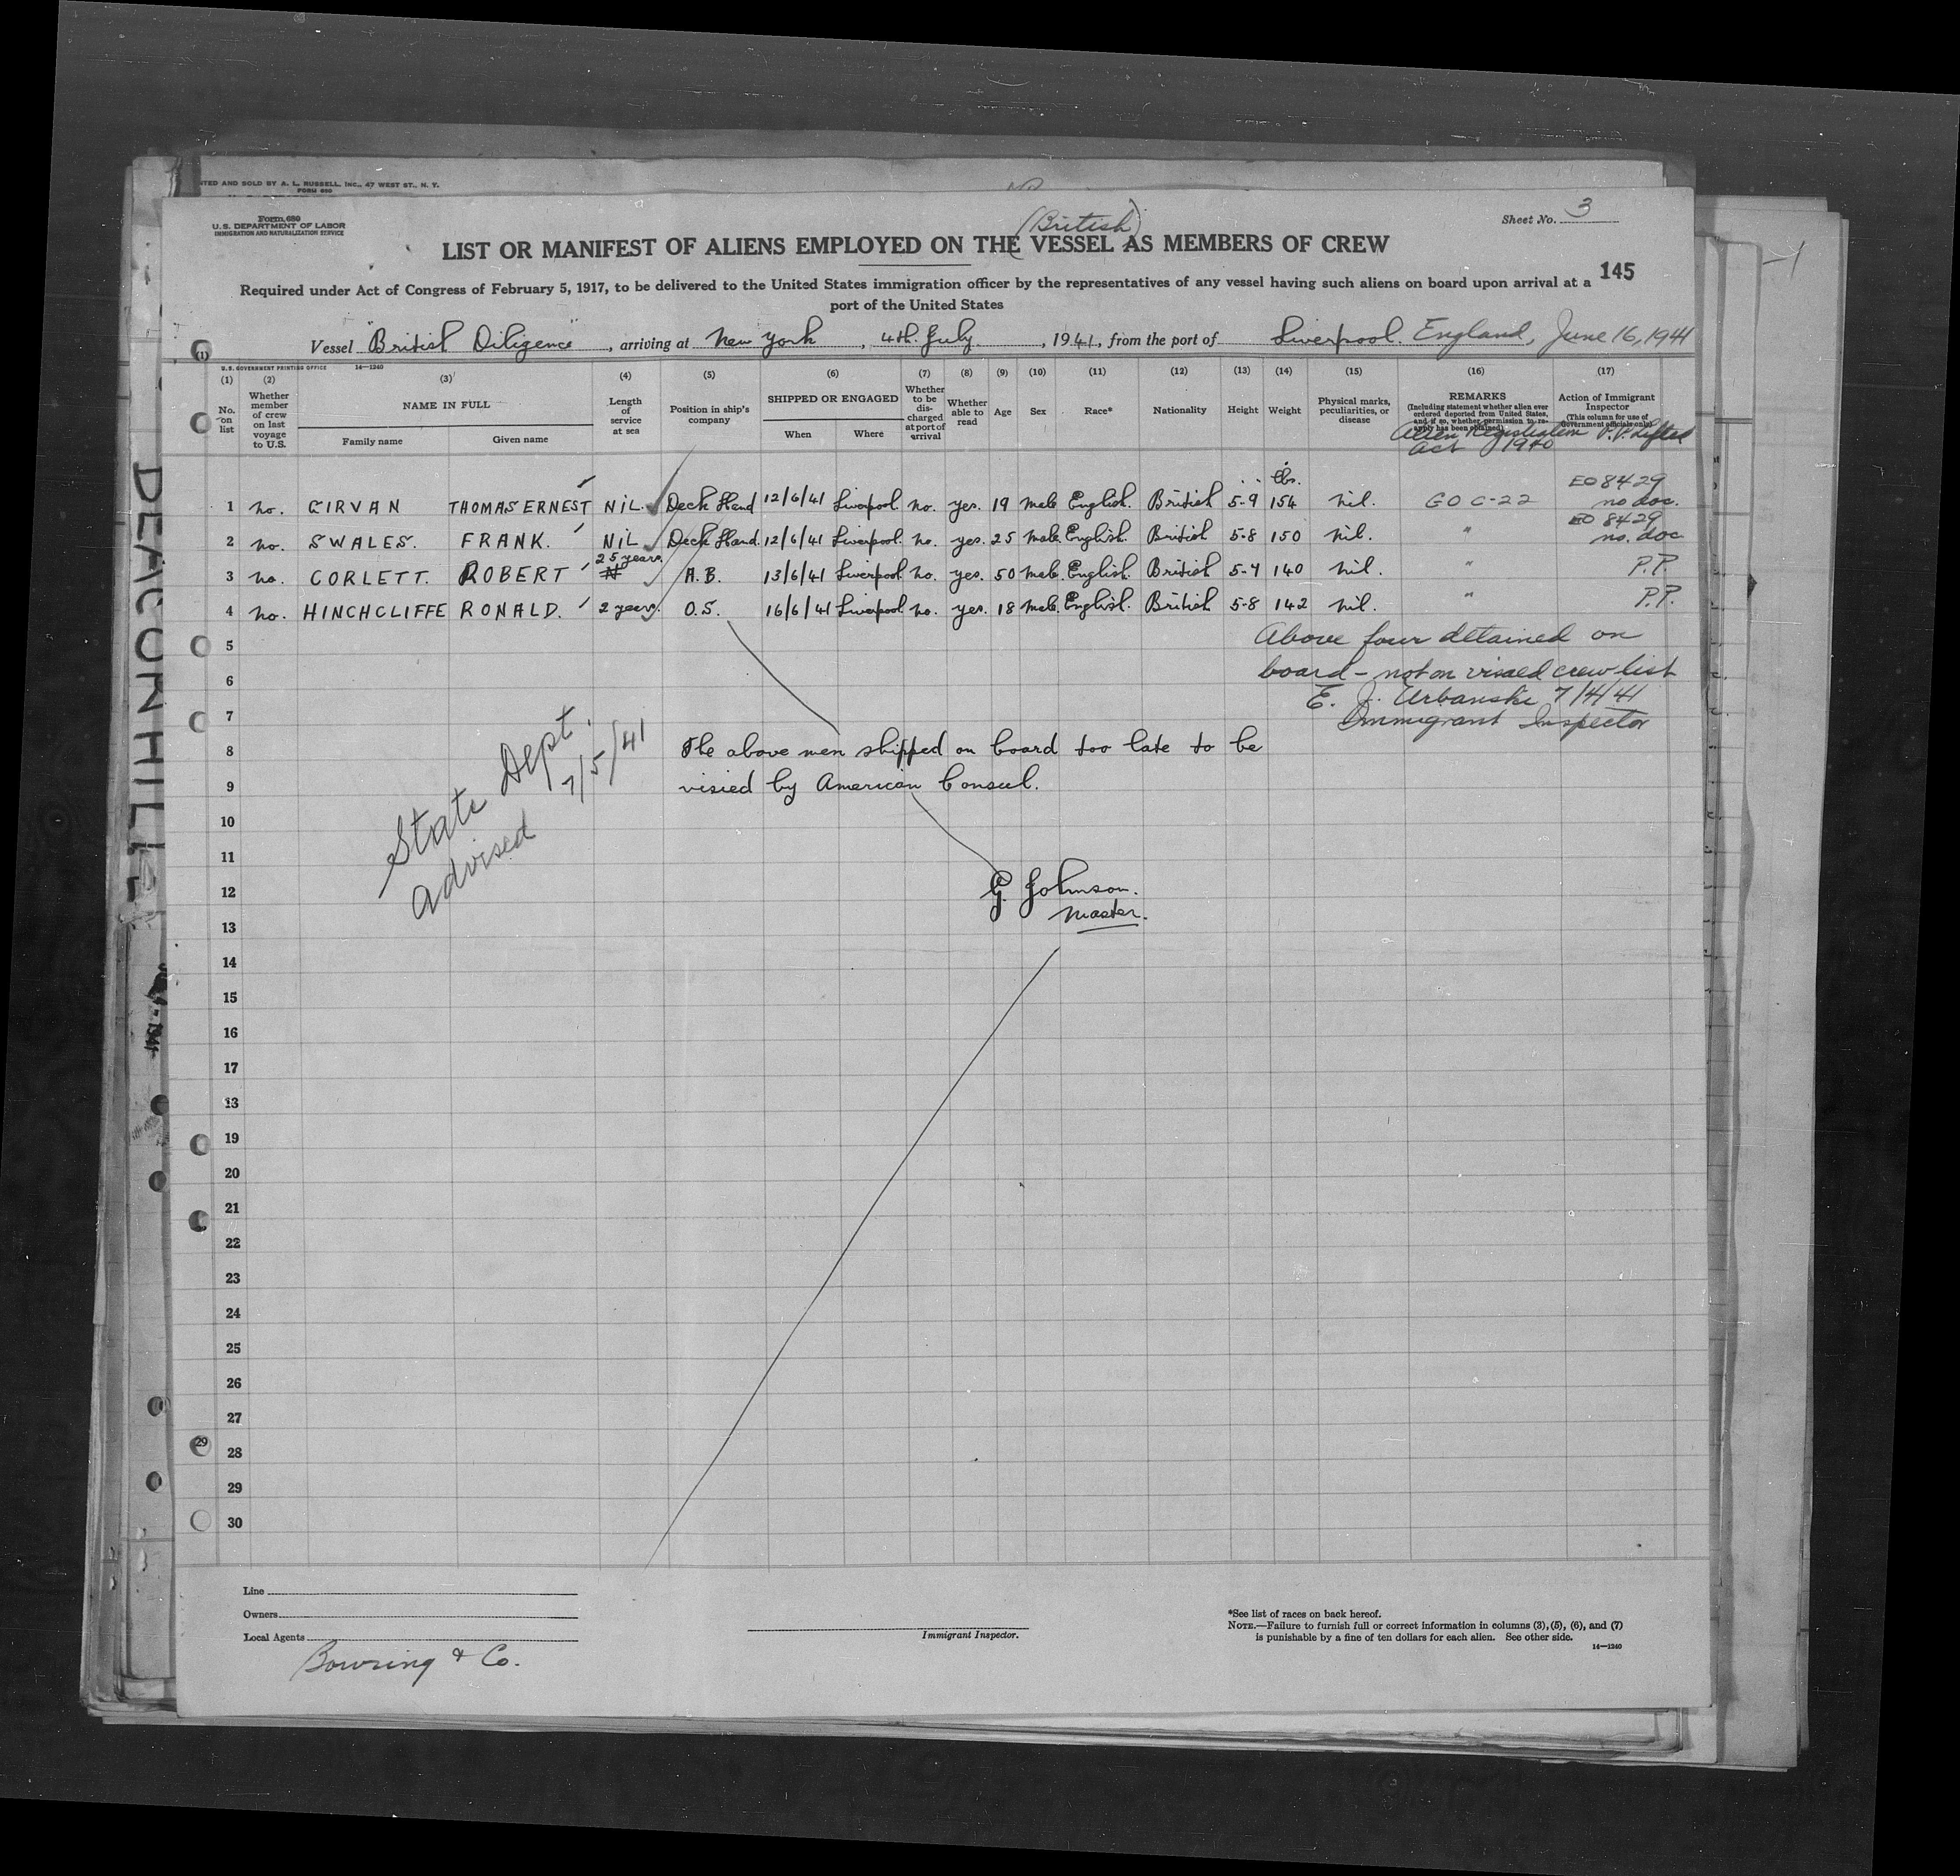 NTED AND SOLD BY A. L. RUSSELL, INC., 47 WEST ST., N. Y.
FORM 680
Form 680
U.S. DEPARTMENT OF LABOR
IMMIGRATION AND NATURALIZATION SERVICE
Sheet No. 3
(British)
LIST OR MANIFEST OF ALIENS EMPLOYED ON THE VESSEL AS MEMBERS OF CREW
145
Required under Act of Congress of February 5, 1917, to be delivered to the United States immigration officer by the representatives of any vessel having such aliens on board upon arrival at a
port of the United States
Vessel "British Diligence", arriving at New York, 4th. July, 1941, from the port of Liverpool. England, June 16, 1941
U.S. GOVERNMENT PRINTING OFFICE 14—1240
(1) (2) (3) (4) (5) (6) (7) (8) (9) (10) (11) (12) (13) (14) (15) (16) (17)
No. on list
Whether member of crew on last voyage to U.S.
NAME IN FULL
Family name Given name
Length of service at sea
Position in ship's company
SHIPPED OR ENGAGED
When Where
Whether to be discharged at port of arrival
Whether able to read
Age
Sex
Race*
Nationality
Height
Weight
Physical marks, peculiarities, or disease
REMARKS
(Including statement whether alien ever ordered deported from United States, and if so, whether permission to reapply has been obtained)
Action of Immigrant Inspector
(This column for use of Government officials only)
Alien Registration P.P. Lifted
Act 1940
lbs.
1 no. GIRVAN THOMAS ERNEST NIL. Deck Hand 12/6/41 Liverpool no. yes. 19 male English. British 5-9 154 nil. GO C-22 EO 8429 no doc.
2 no. SWALES. FRANK. NIL Deck Hand. 12/6/41 Liverpool. no. yes. 25 male English. British 5-8 150 nil. " EO 8429 no. doc
3 no. CORLETT. ROBERT 25 years. A.B. 13/6/41 Liverpool no. yes. 50 male. English. British 5-4 140 nil. " P.P.
4 no. HINCHCLIFFE RONALD. 2 years. O.S. 16/6/41 Liverpool no. yes. 18 male. English. British 5-8 142 nil. " P.P.
5
Above four detained on
6
board - not on visaed crew list
E. J. Urbanski 7/4/41
7
Immigrant Inspector
8
The above men shipped on board too late to be
9
visied by American Consul.
State Dept. 7/5/41
advised
10
11
12
G. Johnson.
Master.
13
14
15
16
17
13
19
20
21
22
23
24
25
26
27
28
29
30
(1)
29
DEACON HILL
Line
Owners
Local Agents
Bowring & Co.
Immigrant Inspector.
*See list of races on back hereof.
NOTE.—Failure to furnish full or correct information in columns (3), (5), (6), and (7)
is punishable by a fine of ten dollars for each alien. See other side.
14—1240